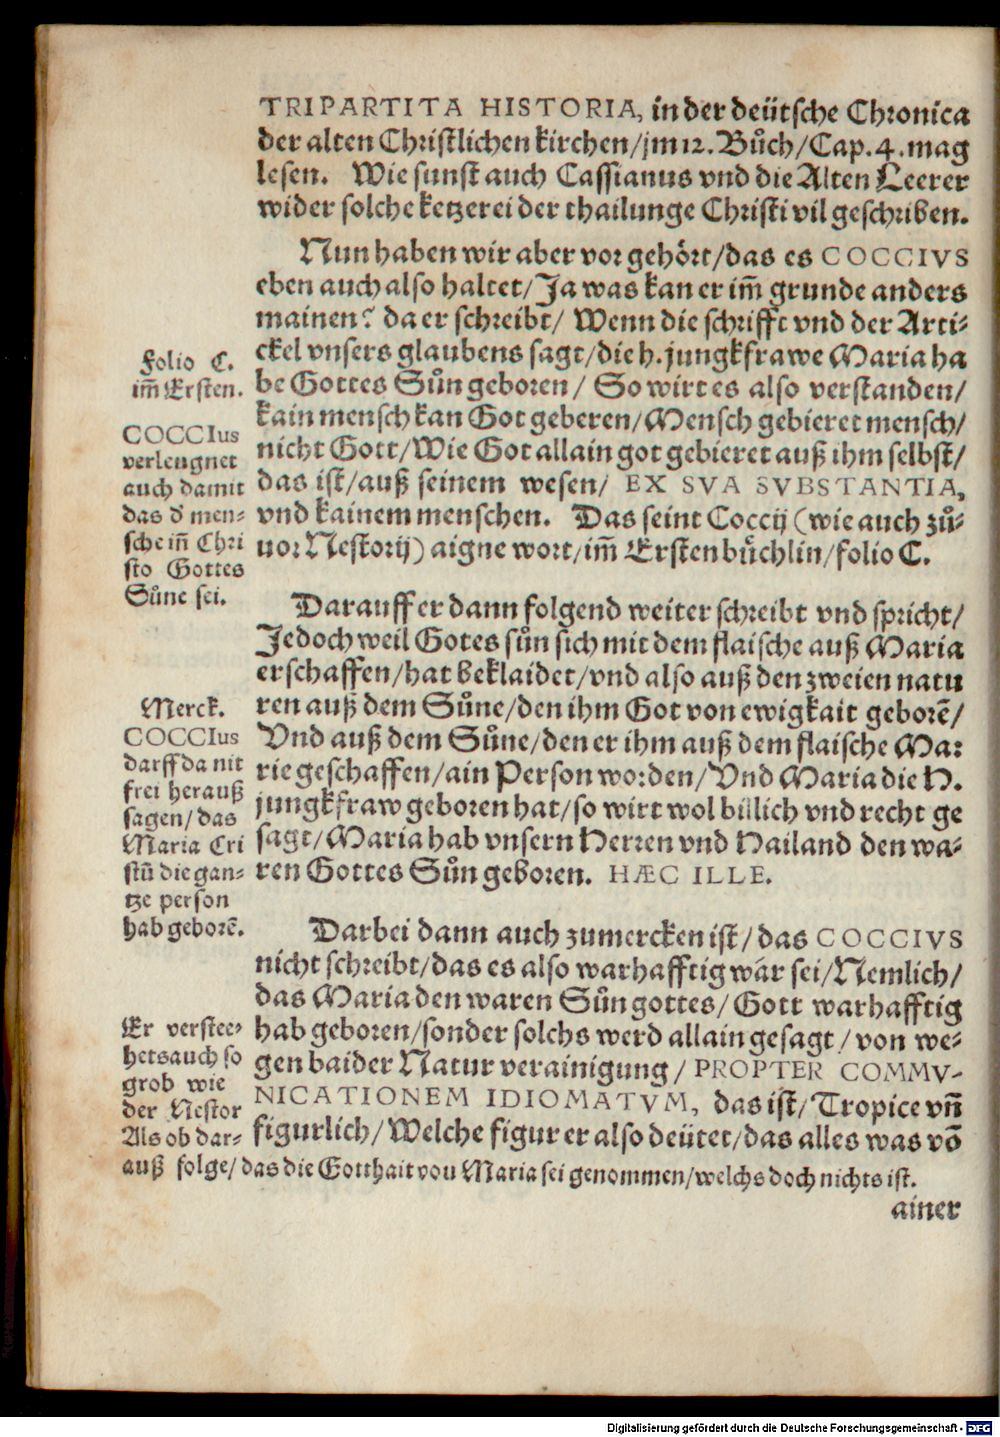 TRIPARTITA HISTORIA, in der deütsche Chronica
der alten Christlichen kirchen/jm 12. Bůch/Cap. 4. mag
lesen. Wie sunst auch Cassianus vnd die Alten Leerer
wider solche ketzerei der thailunge Christi vil geschriben.
Nun haben wir aber vor gehört/das es COCCIVS
eben auch also haltet/Ja was kan er im̃ grunde anders
mainen? da er schreibt/ Wenn die schrifft vnd der Arti-
ckel vnsers glaubens sagt/die h. jungkfrawe Maria ha
be Gottes Sůn geboren/ So wirt es also verstanden/
kain mensch kan Got geberen/Mensch gebieret mensch/
nicht Gott/Wie Got allain got gebieret auß ihm selbst/
das ist/auß seinem wesen/ EX SVA SVBSTANTIA,
vnd kainem menschen. Das seint Coccij (wie auch zů-
uor Nestorij) aigne wort/im̃ Ersten bůchlin/folio C.
Folio C.
im̃ Ersten.
COCCIus
verleugnet
auch damit
das d' men-
sche in̄ Chri
sto Gottes
Sůne sei.
Darauff er dann folgend weiter schreibt vnd spricht/
Jedoch weil Gotes sůn sich mit dem flaische auß Maria
erschaffen/hat beklaidet/vnd also auß den zweien natu
ren auß dem Sůne/den ihm Got von ewigkait geborē/
Vnd auß dem Sůne/den er ihm auß dem flaische Mar
rie geschaffen/ain Person worden/Vnd Maria die H.
jungkfraw geboren hat/so wirt wol billich vnd recht ge
sagt/Maria hab vnsern Herren vnd Hailand den wa-
ren Gottes Sůn geboren. HÆC ILLE.
Merck.
COCCIus
darff da nit
frei herauß
sagen/das
Maria Cri
stū die gan-
tze person
hab geborē.
Darbei dann auch zumercken ist/das COCCIVS
nicht schreibt/das es also warhafftig wär sei/Nemlich/
das Maria den waren Sůn gottes/Gott warhafftig
hab geboren/sonder solchs werd allain gesagt/von we-
gen baider Natur verainigung/PROPTER COMMV-
NICATIONEM IDIOMATVM, das ist/Tropice vn̄
figurlich/Welche figur er also deütet/das alles was vō
Er verstee-
hets auch so
grob wie
der Nestor
Als ob dar-
auß folge/das die Gotthait von Maria sei genommen/welchs doch nichts ist.
ainer
Digitalisierung gefördert durch die Deutsche Forschungsgemeinschaft - DFG